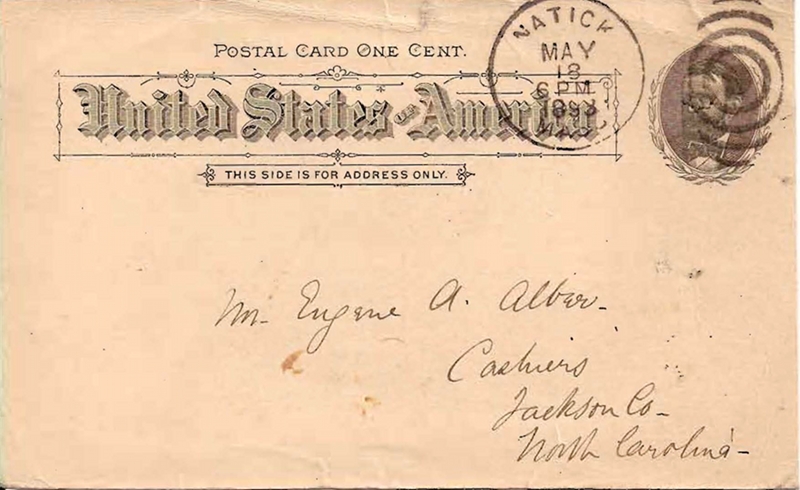 POSTAL CARD ONE CENT.
United States of America
THIS SIDE IS FOR ADDRESS ONLY.
NATICK
MAY
18
6 PM
1893
MASS
Mr. Eugene A. Alber-
Cashiers
Jackson Co-
North Carolina-